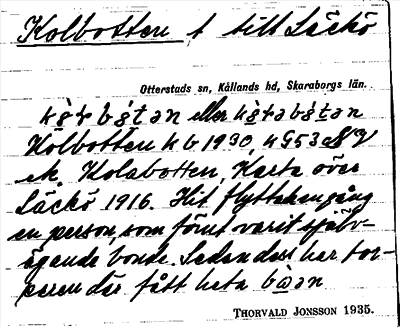 Kolbotten t till Läckö
Otterstads sn, Kållands hd, Skaraborgs län.
eller
Kolbotten kb 1930, k G53 SV
ek. Kolabotten, Karta över
Läckö 1916. Hit flyttade en gång
en person, som förut varit själv-
ägande bonde. Sedan dess har tor-
paren där fått heta
THORVALD JONSSON 1935.